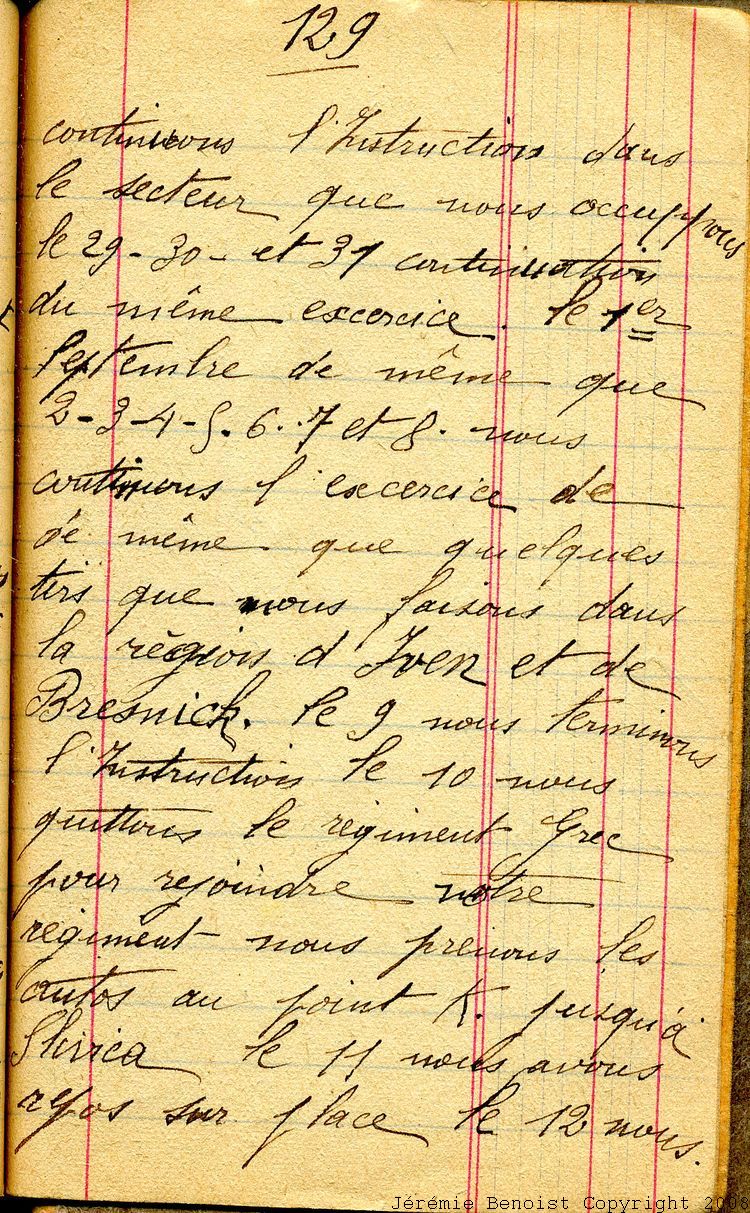 129
continuons l'Instruction dans
le secteur que nous occuppons
le 29 - 30 - et 31 continuation
du même excercice. le 1er
Septembre de même que
2 - 3 - 4 - 5 . 6 . . 7 et 8 . nous
continuons l'excercice de
de même que quelques
tirs que nous faisons dans
la région d Iven et de
Bresnick. le 9 nous terminons
l'Instruction le 10 nous
quittons le regiment Grec
pour rejoindre notre
regiment nous prenons les
autos au point K. jusqu'à
Slivica le 11 nous avons
repos sur place le 12 nous.
Jérémie Benoist Copyright 2008